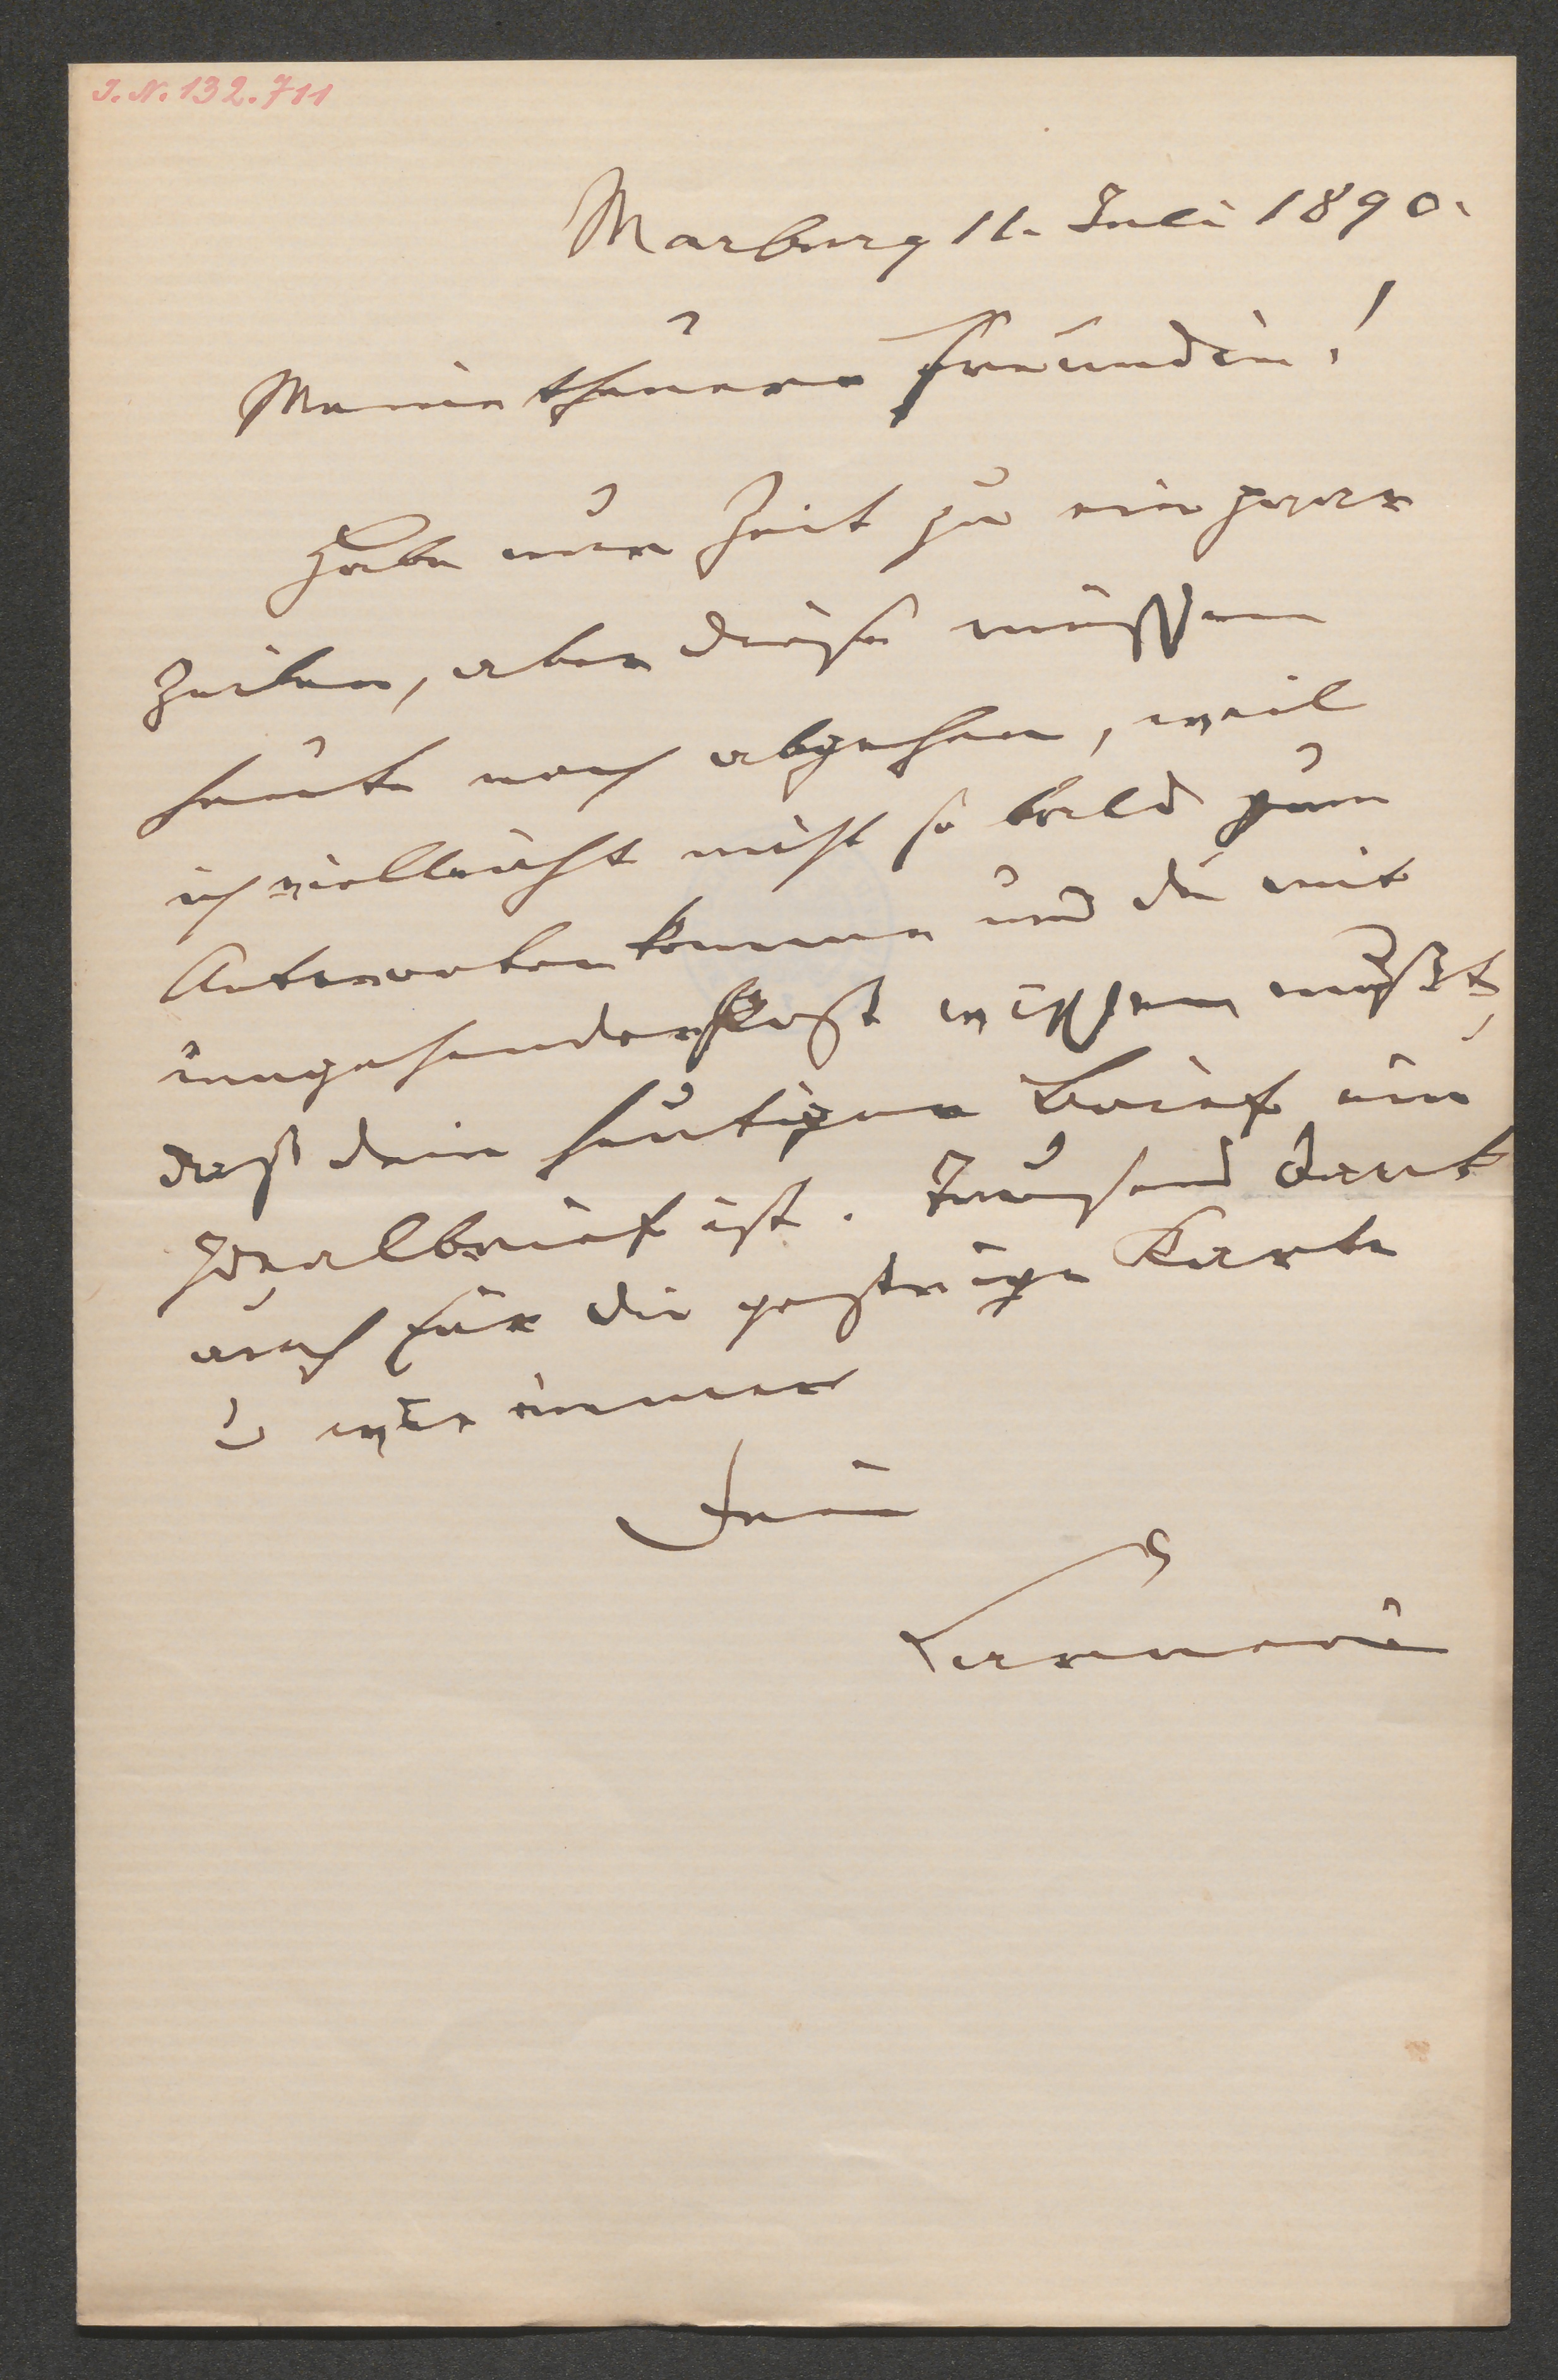 I. N. 132.711
Marburg 11. Juli 1890.
Meine theuere Freundin!
Habe nur Zeit zu ein paar
Zeilen, aber diese müssen
heute noch abgehen, weil
ich vielleicht nicht so bald zum
Antworten komme und du mit
umgehender Post wissen mußt,
daß dein heutiger Brief ein
Idealbrief ist. Tausend Dank
auch für die gestrige Karte
u wie immer
Dein
Carneri